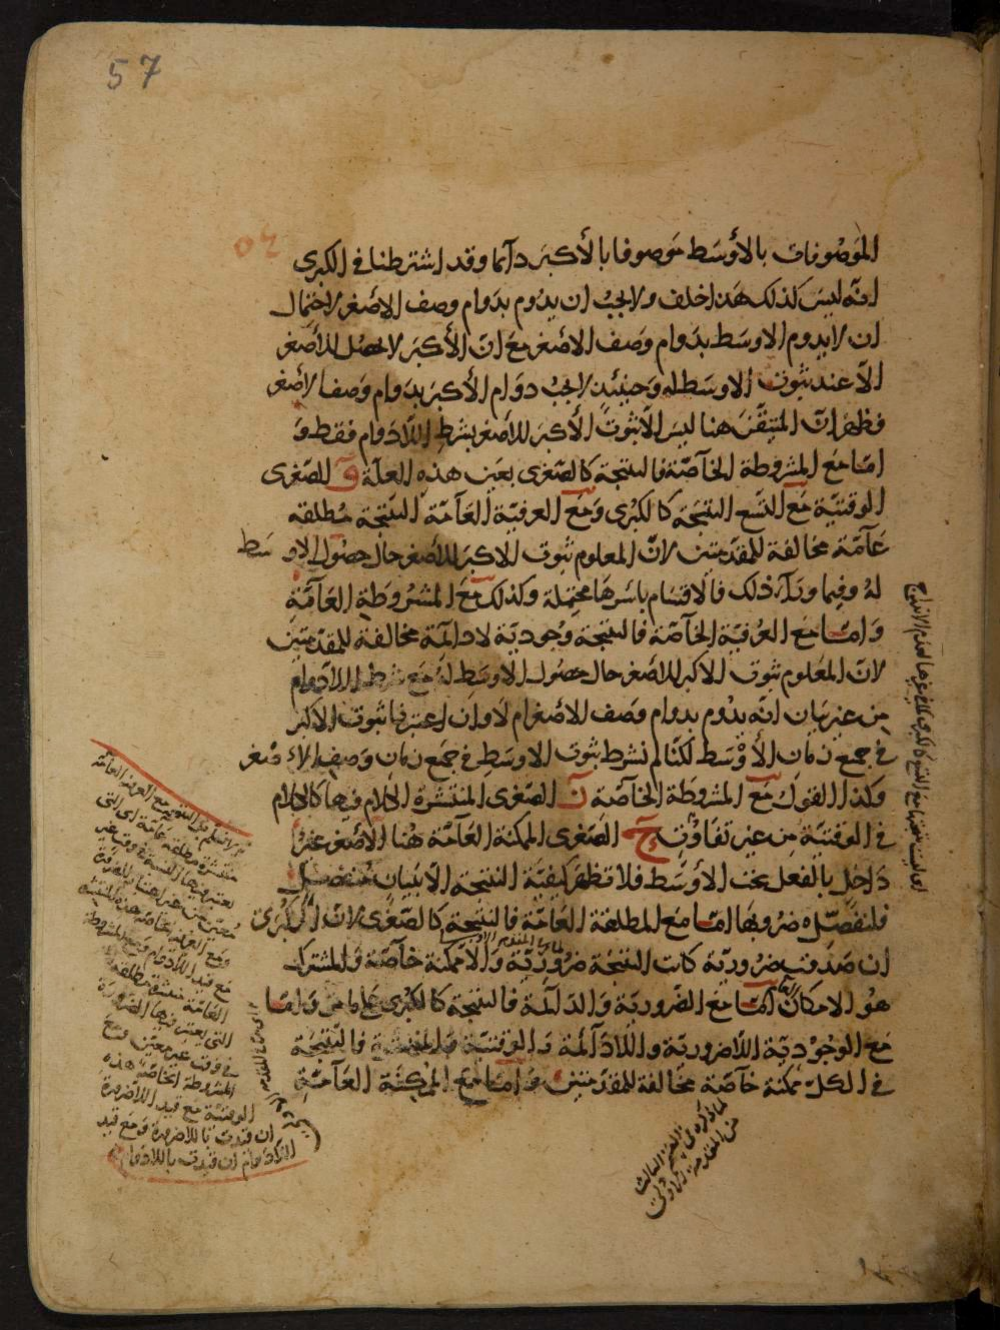 57
الموصوفات بالأوسط موصوفا بالأكبر دائما وقد اشترطنا في الكبرى
انه ليس كذلك هذا خلف ولا يجب ان يدوم بدوام وصف الاصغر لاحتمال
ان لا يدوم الاوسط بدوام وصف الاصغر مع ان الأكبر لا يحصل للاصغر
الا عند ثبوت الاوسط له وحينئذ لا يجب دوام الأكبر بدوام وصف الاصغر
فظهر ان المتيقن هنا ليس الا ثبوت الأكبر للاصغر بشرط اللادوام فقط و
اما مع المشروطة الخاصة فالنتيجة كالصغرى بعين هذه العلة و الصغرى
الوقتية مع التسع النتيجة كالكبرى ومع العرفية العامة النتيجة مطلقه
عامة مخالفة للمقدمتين لان المعلوم ثبوت الاكبر للاصغر حال حصول الاوسط
له وفيما وراء ذلك فالاقسام باسرها محتملة وكذلك مع المشروطة العامة
واما مع العرفية الخاصة فالنتيجة وجودية لا دائمة مخالفة للمقدمتين
لان المعلوم ثبوت الاكبر للاصغر حال حصول الاوسط له مع شرط اللادوام
من غير بيان انه يدوم بدوام وصف الاصغر ام لا وان اعتبرنا ثبوت الاكبر
في جميع زمان الأوسط لكنا لم نشرط ثبوت الاوسط في جميع زمان وصف الاصغر
وكذا القول مع المشروطة الخاصة ن الصغرى المنتشرة الكلام فيها كالكلام
في الوقتية من غير تفاوت ح الصغرى الممكنة العامة هنا الأصغر غير
داخل بالفعل تحت الأوسط فلا تظهر كيفية النتيجة الا ببيان منفصل
فلنفصل ضروبها اما مع المطلقة العامة فالنتيجة كالصغرى لان الكبرى
ان صدقت ضرورية كانت النتيجة ضرورية والا ممكنة خاصة والمشترك
هو الامكان العام اما مع الضرورية والدائمة فالنتيجة كالكبرى على ما مر واما
مع الوجودية اللاضرورية واللادائمة والوقتية والمنتشرة فالنتيجة
في الكل ممكنة خاصة مخالفة للمقدمتين واما مع الممكنة العامة
منتشرة مطلقة عامة اى التى
مع قيد اللادوام ومع المشروطة
العامة منتشرة مطلقة
التى يعتبر فيها الضرورة
في وقت غير معين ومع
المشروطة الخاصة هذه
الوقتية مع قيد اللاضرورة
ان قيدت باللاضرورة ومع قيد
اللادوام ان قيدت باللادوام
لما ذكره في القسم الثالث
من المقدمة الاولى